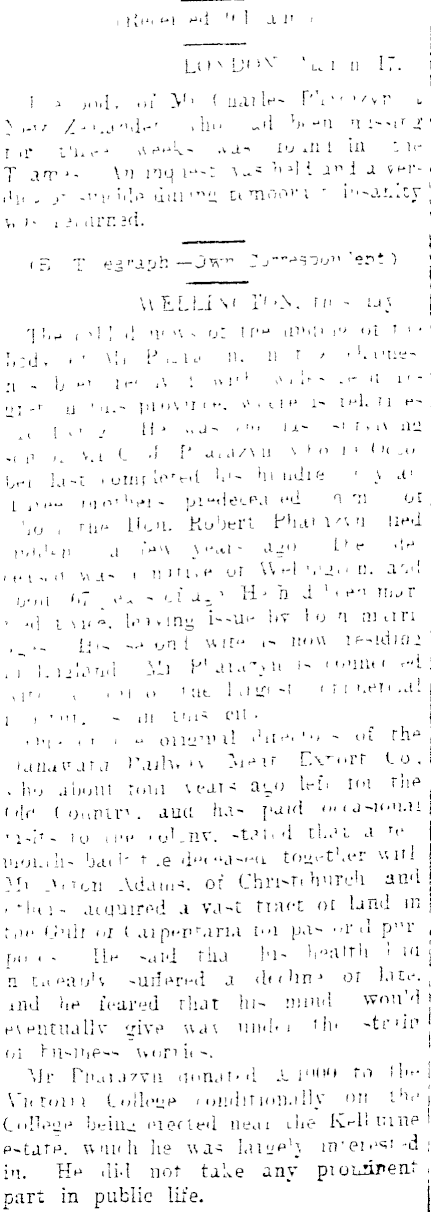 LONDON, 17.
body of Mr Charles Pharazyn, a
New Zealander, who had been missing
for three weeks was found in the
Thames. An inquest was held and a ver-
suicide during temporary insanity
was returned.
Telegraph.—Own Correspondent.)
WELLINGTON, this day.
The news of the of the
body of Mr Pharazyn in the Thames
has been with re-
gret in this province, where his relatives
He was the surviving
son of Mr C. J. Pharazyn who in Octo-
ber last completed his year.
Three brothers predeceased him, of
whom the Hon. Robert Pharazyn died
a few years ago. The de-
ceased was a native of Wellington, and
about 67 years of age. He had been mar-
ried twice, leaving issue by both marri-
ages. His second wife is now residing
in England. Mr Pharazyn is connected
with the largest commercial
in this city.
of the original directors of the
Railway Meat Export Co.,
who about four years ago left for the
Old Country, and has paid occasional
visits to the colony, stated that a few
months back the deceased, together with
Mr Acton Adams, of Christchurch and
others acquired a vast tract of land in
the Gulf of Carpentaria for pastoral pur-
poses. He said that his health had
noticeably suffered a decline of late,
and he feared that his mind would
eventually give way under the strain
of business worries.
Mr Pharazyn donated £1000 to the
Victoria College conditionally on the
College being erected near the Kelburne
estate, which he was largely interested
in. He did not take any prominent
part in public life.